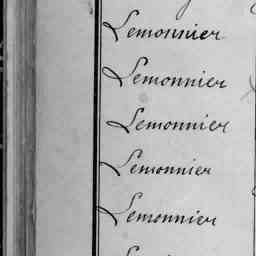 Lemonnier
Lemonnier
Lemonnier
Lemonnier
Lemonnier